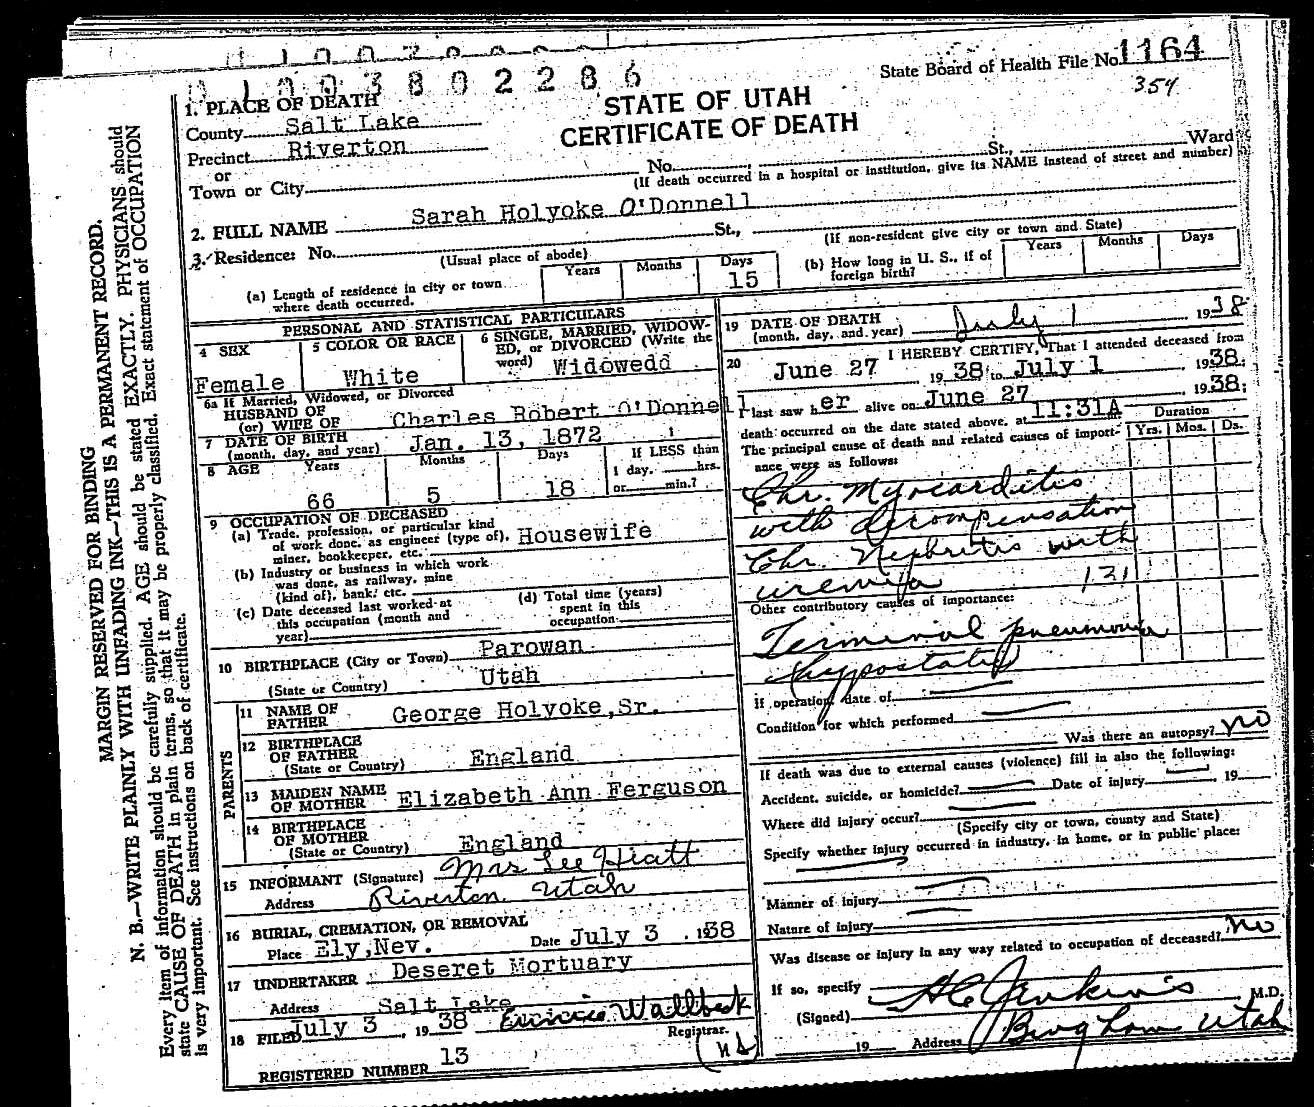 1003802286
State Board of Health File No. 1164
354
STATE OF UTAH
CERTIFICATE OF DEATH
1. PLACE OF DEATH
County Salt Lake
Precinct Riverton
or
Town or City No. St., Ward
(If death occurred in a hospital or institution, give its NAME instead of street and number)
2. FULL NAME Sarah Holyoke O'Donnell
3. Residence: No. St.,
(Usual place of abode) (If non-resident give city or town and State)
(a) Length of residence in city or town where death occurred. Years Months Days 15
(b) How long in U. S., if of foreign birth? Years Months Days
PERSONAL AND STATISTICAL PARTICULARS
4 SEX Female
5 COLOR OR RACE White
6 SINGLE, MARRIED, WIDOWED, or DIVORCED (Write the word) Widowedd
6a If Married, Widowed, or Divorced
HUSBAND OF
(or) WIFE OF Charles Robert O'Donnell
7 DATE OF BIRTH
(month, day, and year) Jan. 13, 1872
8 AGE Years Months Days If LESS than
1 day, hrs.
66 5 18 or min.?
9 OCCUPATION OF DECEASED
(a) Trade, profession, or particular kind
of work done, as engineer (type of), Housewife
miner, bookkeeper, etc.
(b) Industry or business in which work
was done, as railway, mine
(kind of), bank, etc.
(c) Date deceased last worked at
this occupation (month and
year)
(d) Total time (years)
spent in this
occupation
10 BIRTHPLACE (City or Town) Parowan
(State or Country) Utah
PARENTS
11 NAME OF
FATHER George Holyoke, Sr.
12 BIRTHPLACE
OF FATHER
(State or Country) England
13 MAIDEN NAME
OF MOTHER Elizabeth Ann Ferguson
14 BIRTHPLACE
OF MOTHER
(State or Country) England
15 INFORMANT (Signature) Mrs Lee Hiatt
Address Riverton Utah
16 BURIAL, CREMATION, OR REMOVAL
Place Ely, Nev. Date July 3, 1938
17 UNDERTAKER Deseret Mortuary
Address Salt Lake
18 FILED July 3, 1938 Wallbeck
Registrar.
REGISTERED NUMBER 13
19 DATE OF DEATH
(month, day, and year) July 1 1938
20 I HEREBY CERTIFY, That I attended deceased from
June 27 1938 to July 1 1938.
I last saw her alive on June 27 1938;
death occurred on the date stated above, at 11:31A
The principal cause of death and related causes of importance were as follows:
Duration
Yrs. Mos. Ds.
Chr. Myocarditis
with decompensation
Chr. Nephritis with
uremia 131
Other contributory causes of importance:
Terminal pneumonia
hypostatic
If operation, date of
Condition for which performed
Was there an autopsy? no
If death was due to external causes (violence) fill in also the following:
Accident, suicide, or homicide? Date of injury 19
Where did injury occur?
(Specify city or town, county and State)
Specify whether injury occurred in industry, in home, or in public place:
Manner of injury
Nature of injury
Was disease or injury in any way related to occupation of deceased? No
If so, specify
(Signed) Jenkins M.D.
19 Address Bingham Utah
MARGIN RESERVED FOR BINDING
N. B.—WRITE PLAINLY WITH UNFADING INK—THIS IS A PERMANENT RECORD.
Every item of information should be carefully supplied. AGE should be stated EXACTLY. PHYSICIANS should
state CAUSE OF DEATH in plain terms, so that it may be properly classified. Exact statement of OCCUPATION
is very important. See instructions on back of certificate.